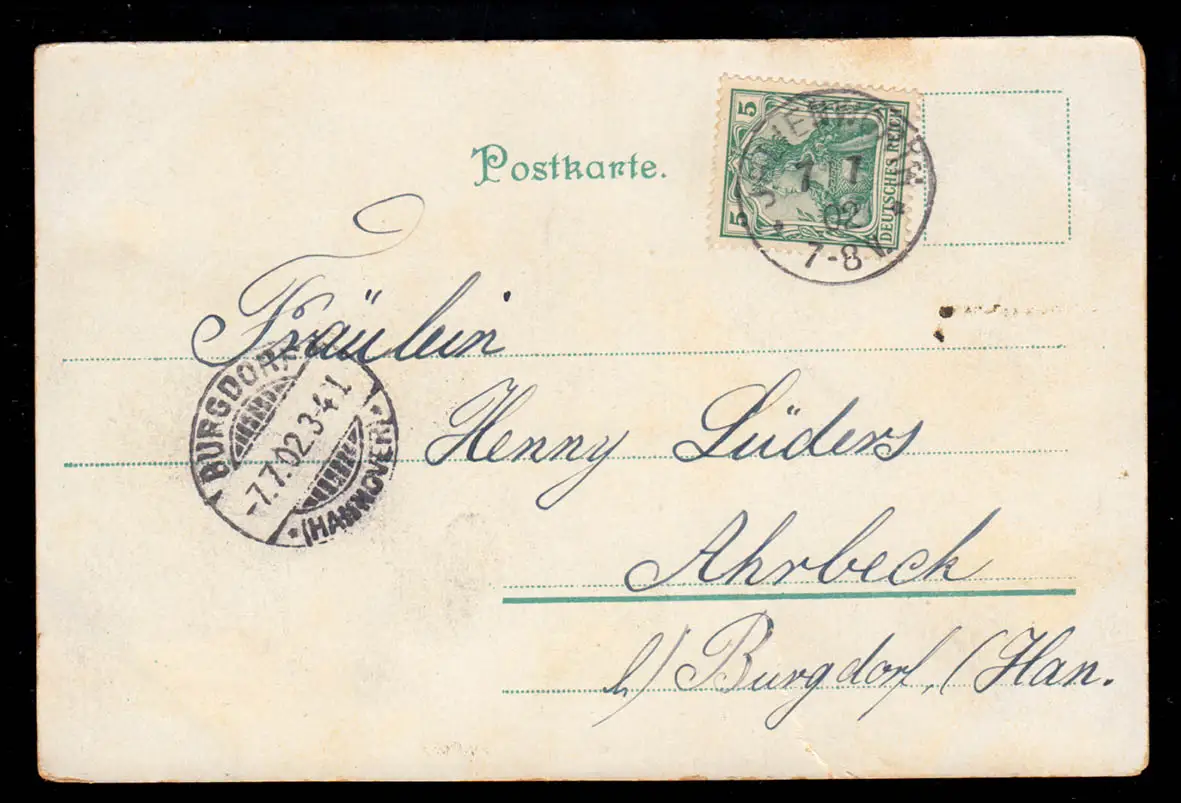 Postkarte.
5
5
DEUTSCHES REICH
7 7
02
7-8 V.
Fräulein
BURGDORF
-7.7.02.3-4 N.
* (HANNOVER) *
Henny Lüders
Ahrbeck
b/ Burgdorf, (Han.